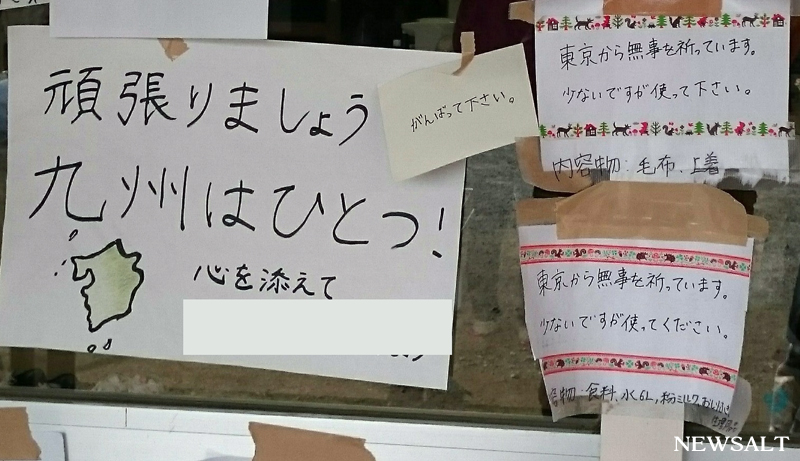 頑張りましょう
九州はひとつ!
心を添えて
がんばって下さい。
東京から無事を祈っています。
少ないですが使って下さい。
内容物:毛布、上着
東京から無事を祈っています。
少ないですが使ってください。
物:食料、水6L、粉ミルク、おしりふき
NEWSALT